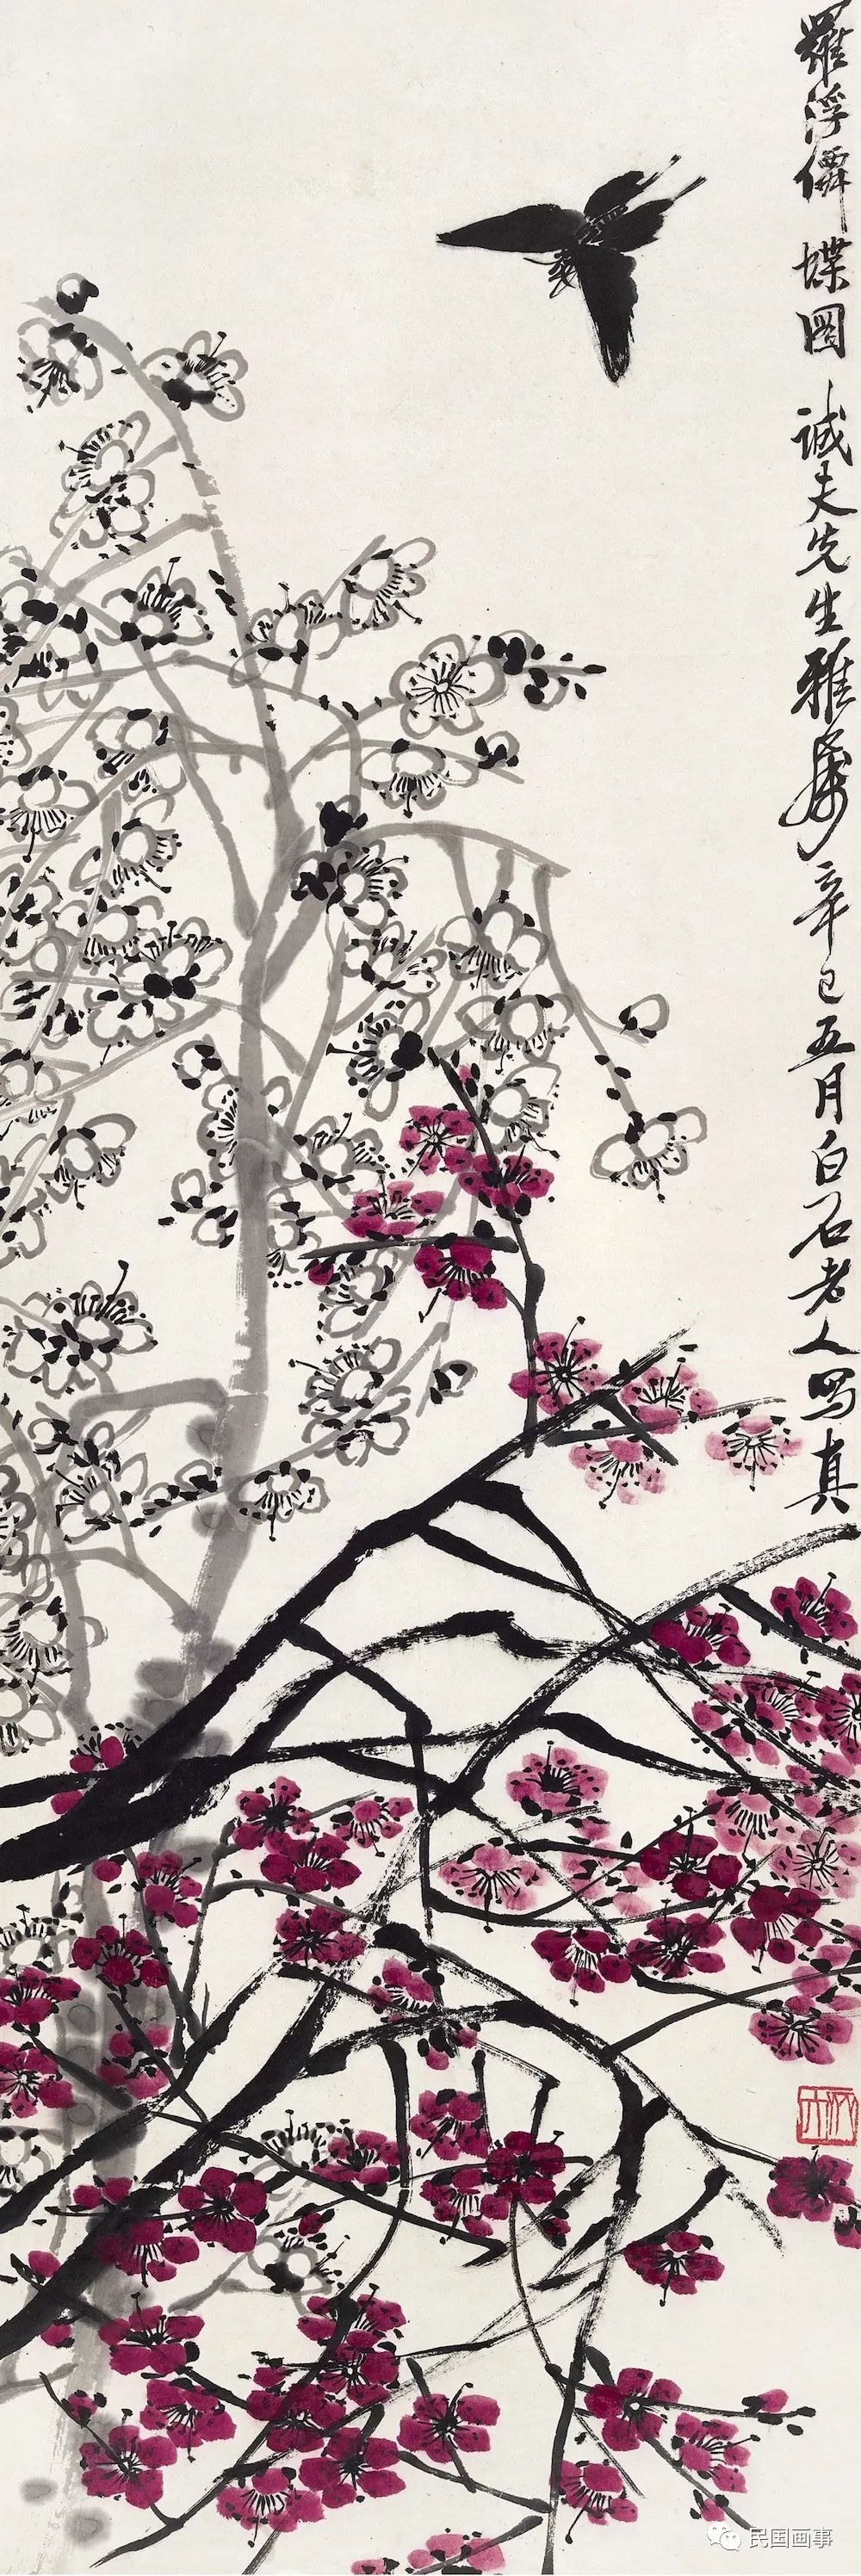 羅浮僊蝶圖 誠夫先生雅屬 辛巳五月白石老人写真
民国画事